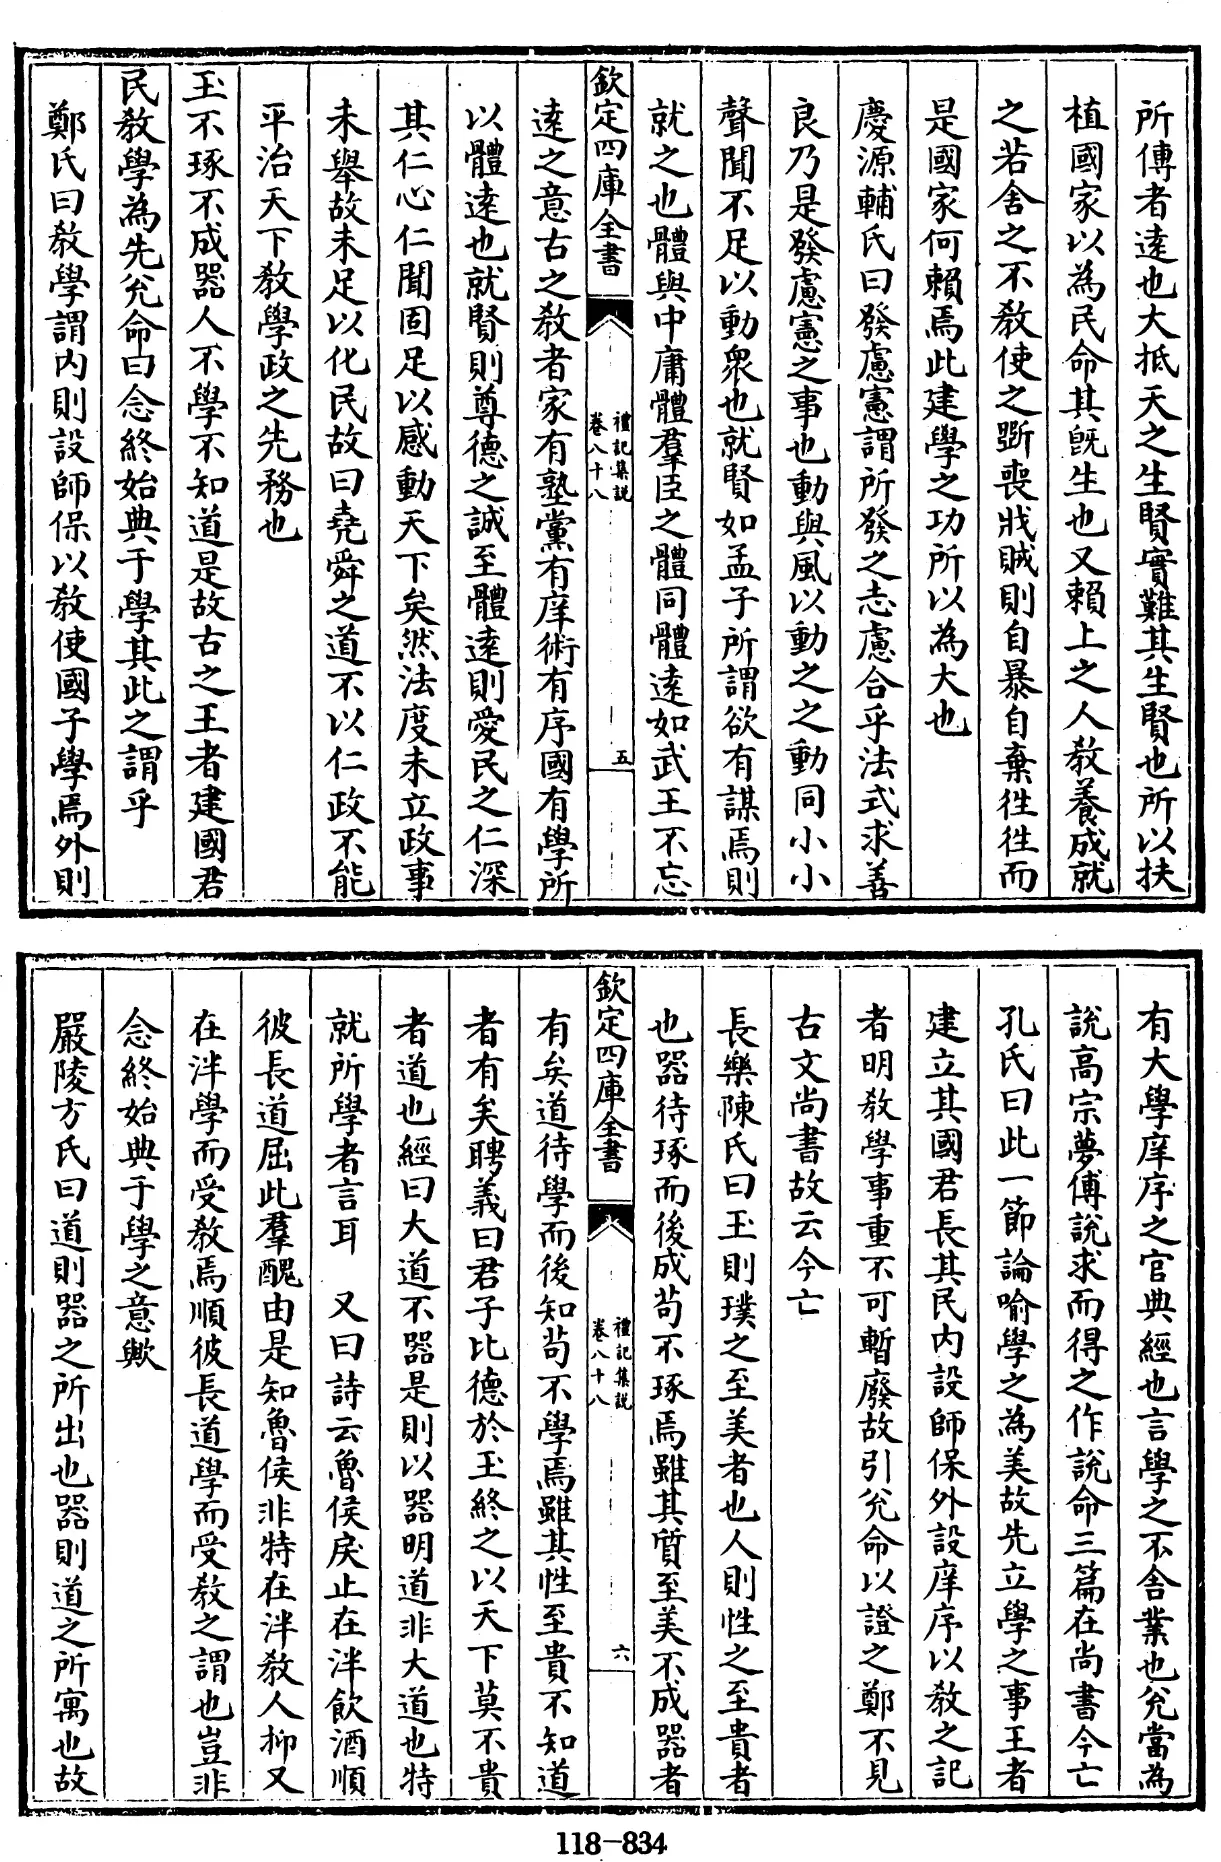 所傳者逺也大抵天之生賢實難其生賢也所以扶
植國家以為民命其旣生也又賴上之人教養成就
之若舍之不教使之斲喪戕賊則自暴自棄徃徃而
是國家何賴焉此建學之功所以為大也
慶源輔氏曰發慮憲謂所發之志慮合乎法式求善
良乃是發慮憲之事也動與風以動之之動同小小
聲聞不足以動衆也就賢如孟子所謂欲有謀焉則
就之也體與中庸體羣臣之體同體逺如武王不忘
欽定四庫全書
禮記集説
卷八十八
五
逺之意古之教者家有塾黨有庠術有序國有學所
以體逺也就賢則尊德之誠至體逺則愛民之仁深
其仁心仁聞固足以感動天下矣然法度未立政事
未舉故未足以化民故曰堯舜之道不以仁政不能
平治天下教學政之先務也
玉不琢不成器人不學不知道是故古之王者建國君
民教學為先兊命曰念終始典于學其此之謂乎
鄭氏曰教學謂内則設師保以教使國子學焉外則
有大學庠序之官典經也言學之不舍業也兊當為
説高宗夢傅説求而得之作説命三篇在尚書今亡
孔氏曰此一節論喻學之為美故先立學之事王者
建立其國君長其民内設師保外設庠序以教之記
者明教學事重不可暫廢故引兊命以證之鄭不見
古文尚書故云今亡
長樂陳氏曰玉則璞之至美者也人則性之至貴者
也器待琢而後成茍不琢焉雖其質至美不成器者
欽定四庫全書
禮記集説
卷八十八
六
有矣道待學而後知茍不學焉雖其性至貴不知道
者有矣聘義曰君子比德於玉終之以天下莫不貴
者道也經曰大道不器是則以器明道非大道也特
就所學者言耳 又曰詩云魯侯戾止在泮飲酒順
彼長道屈此羣醜由是知魯侯非特在泮教人抑又
在泮學而受教焉順彼長道學而受教之謂也豈非
念終始典于學之意歟
嚴陵方氏曰道則器之所出也器則道之所寓也故
118-834